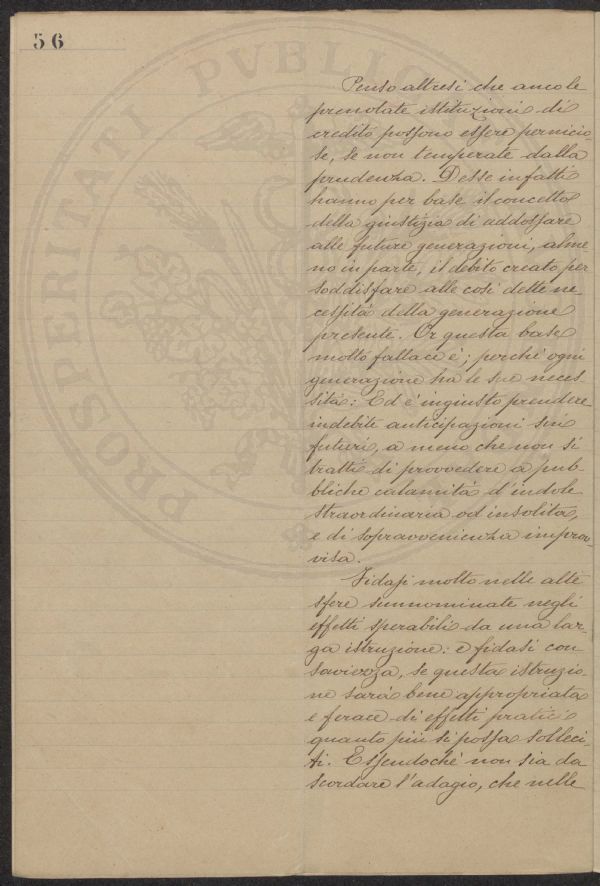 56
PROSPERITATI PVBLIC
Penso altresì che anco le
prenotate istituzioni di
credito possono essere pernicio-
se, se non temperate dalla
prudenza. Desse infatti
hanno per base il concetto
della giustizia di addossare
alle future generazioni, alme
no in parte, il debito creato per
soddisfare alle così dette ne-
cessità della generazione
presente. Or questa base
molto fallace è; perché ogni
generazione ha le sue neces-
sità: Ed è ingiusto prendere
indebite anticipazioni sui
futuri, a meno che non si
tratti di provvedere a pub-
bliche calamità d'indole
straordinaria od insolita,
e di sopravvenienza improv-
visa.
Fidasi molto nelle alte
sfere sunnominate negli
effetti sperabili da una lar-
ga istruzione: e fidasi con
saviezza, se questa istruzio-
ne sarà bene appropriata
e ferace di effetti pratici
quanto più si possa solleci-
ti. Essendoché non sia da
scordare l'adagio, che nelle